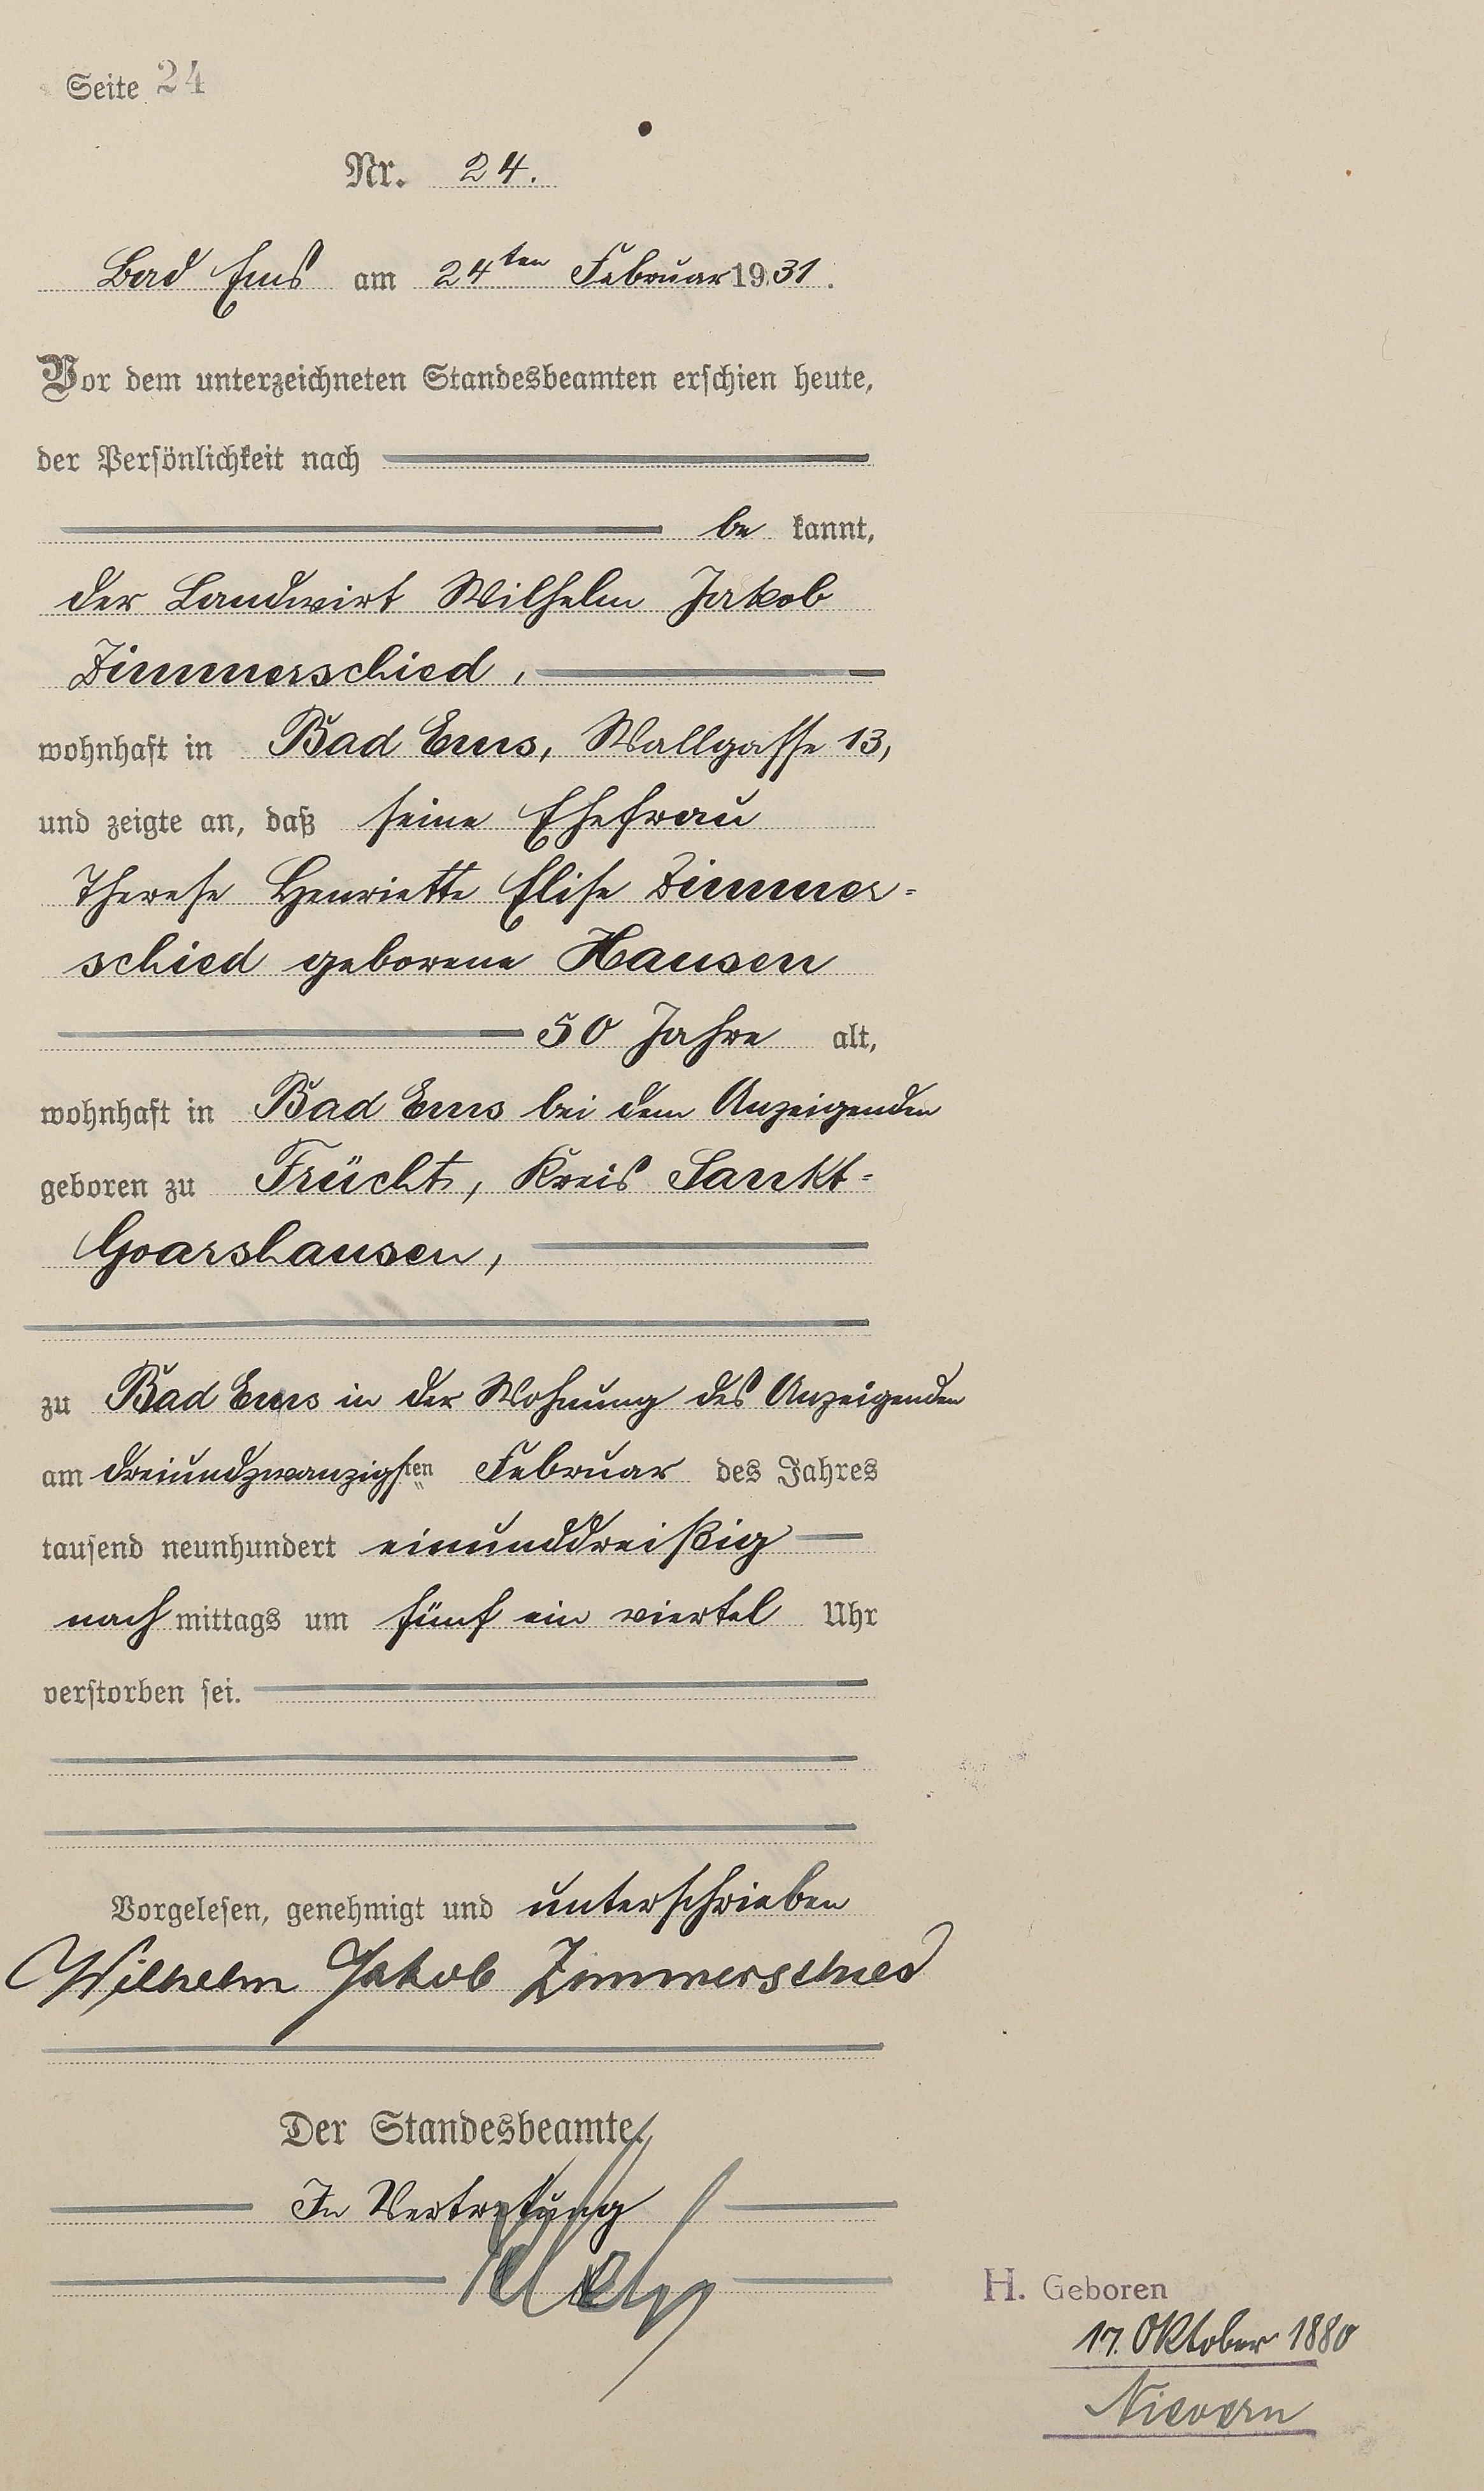 Seite 24
Nr. 24.
Bad Ems am 24ten Februar 1931.
Vor dem unterzeichneten Standesbeamten erschien heute,
der Persönlichkeit nach
be kannt,
der Landwirt Wilhelm Jakob
Zimmerschied,
wohnhaft in Bad Ems, Wallgasse 13,
und zeigte an, daß seine Ehefrau
Therese Henriette Elise Zimmer-
schied geborene Hausen
50 Jahre alt,
wohnhaft in Bad Ems bei dem Anzeigenden
geboren zu Frücht, Kreis Sankt-
Goarshausen,
zu Bad Ems in der Wohnung des Anzeigenden
am dreiundzwanzigsten Februar des Jahres
tausend neunhundert einunddreißig
nachmittags um fünf ein viertel Uhr
verstorben sei.
Vorgelesen, genehmigt und unterschrieben
Wilhelm Jakob Zimmerschied
Der Standesbeamte.
In Vertretung
H. Geboren
17. Oktober 1880
Nievern